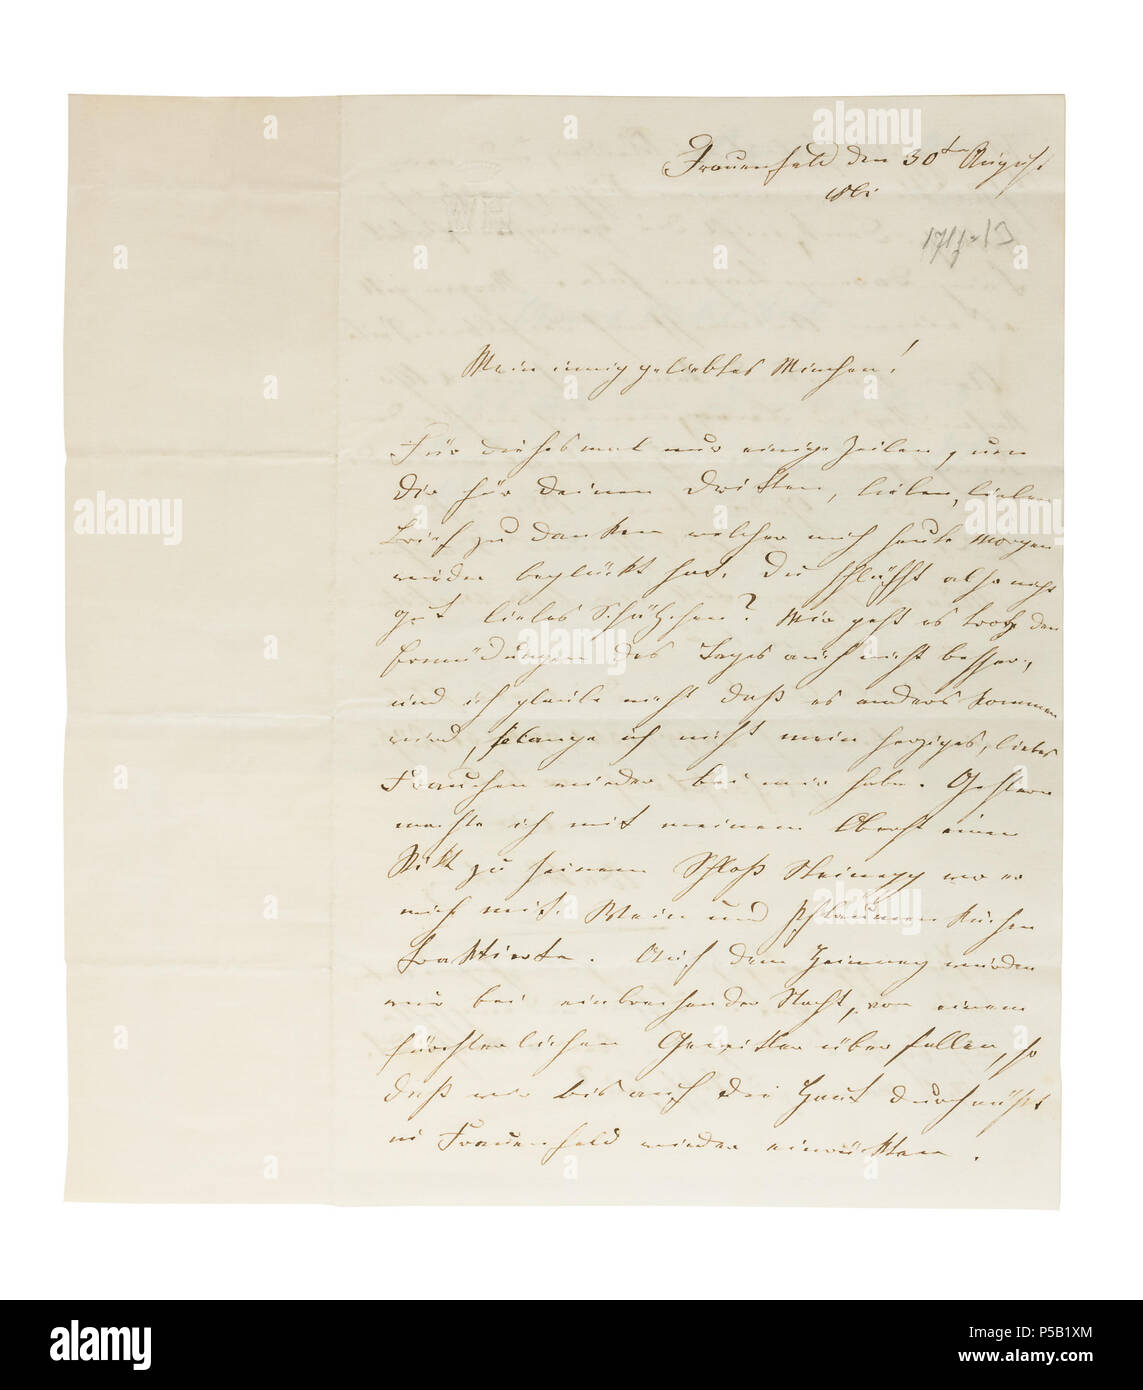 Frauenfeld den 30ten August
Mein innig geliebtes Minchen!
Für diesesmal nur einige Zeilen, um
Dir für deinen dritten, lieben, lieben
Brief zu danken welcher mich heute Morgen
wieder beglückt hat. Du schläfst also nicht
gut liebes Schätzchen? Mir geht es trotz den
Ermüdungen des Tages auch nicht besser,
und ich glaube nicht daß es anders kommen
wird, solange ich nicht mein herziges, liebes
Frauchen wieder bei mir habe. Gestern
machte ich mit meinem Oberst einen
Ritt zu seinem Schloß Steinegg wo er
mich mit Wein und Pflaumenkuchen
traktierte. Auf dem Heimweg wurden
wir bei einbrechender Nacht, von einem
fürchterlichen Gewitter überfallen, so
daß wir bis auf die Haut durchnäßt
in Frauenfeld wieder einrückten.
alamy
Image ID: P5B1XM
www.alamy.com